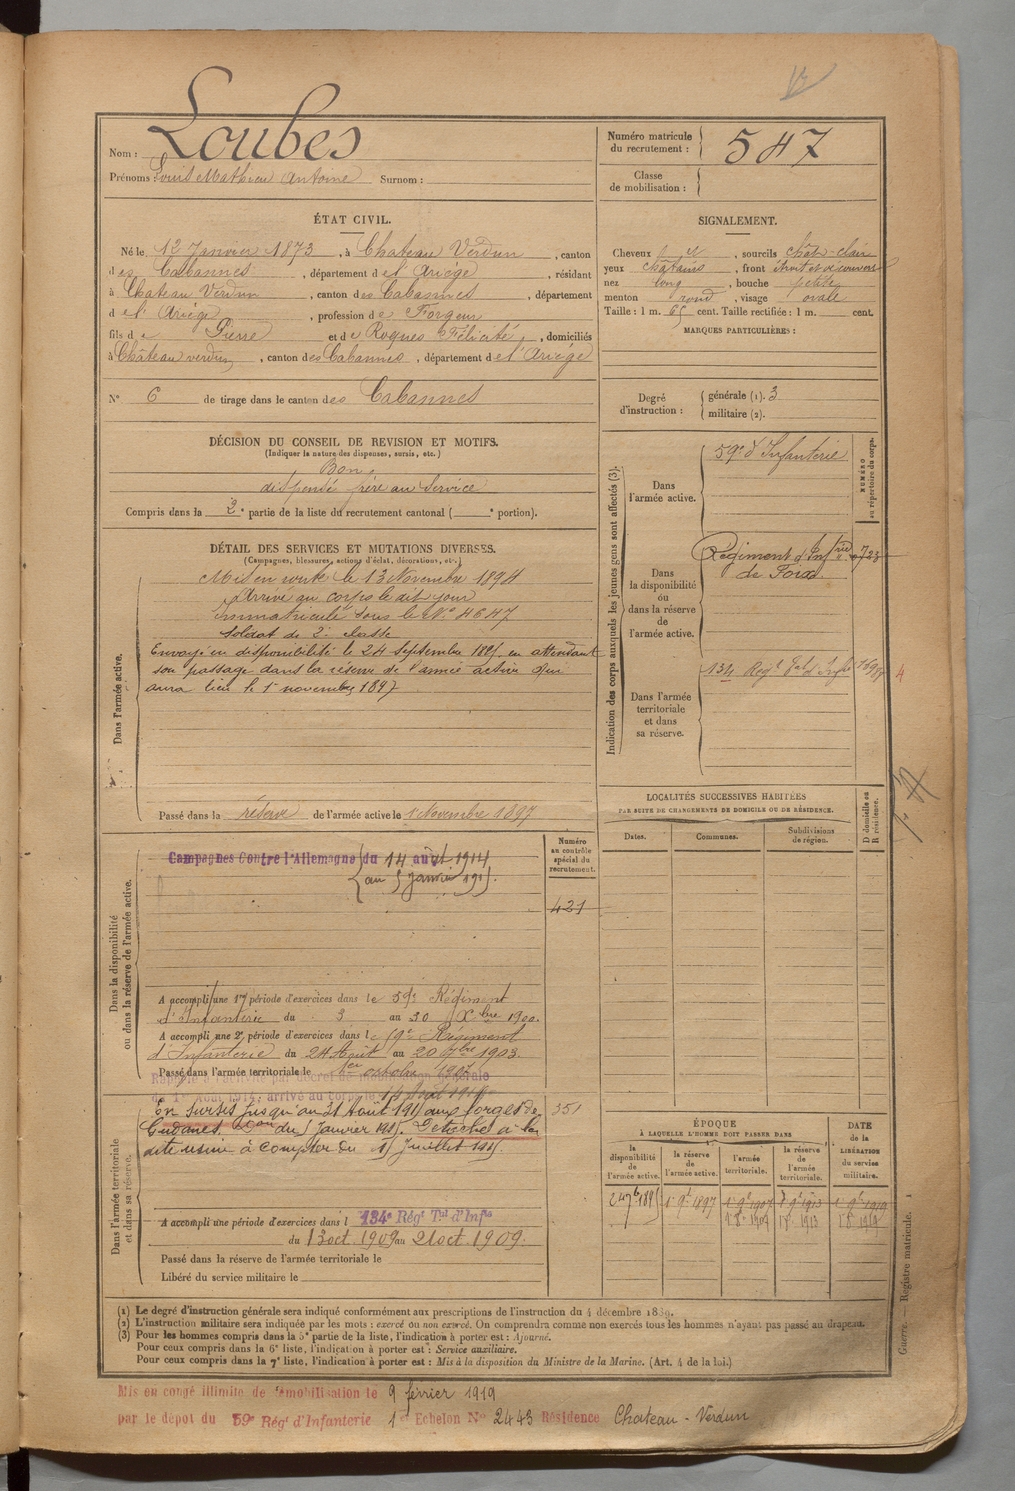 Nom : Loubes
Prénoms : Louis Mathieu Antoine Surnom :
Numéro matricule du recrutement : 547
Classe de mobilisation :
ÉTAT CIVIL.
Né le 12 Janvier 1873, à Chateau Verdun, canton
des Cabannes, département de l'Ariège, résidant
à Chateau Verdun, canton des Cabannes, département
de l'Ariège, profession de Forgeur
fils de Pierre et de Roques Félicité, domiciliés
à Château verdun, canton des Cabannes, département de l'Ariège
N° 6 de tirage dans le canton des Cabannes
SIGNALEMENT.
Cheveux et, sourcils chât-clair
yeux châtains, front étroit et découvert
nez long, bouche petite
menton rond, visage ovale
Taille : 1 m. 65 cent. Taille rectifiée : 1 m. cent.
MARQUES PARTICULIÈRES :
Degré d'instruction : générale (1). 3
militaire (2).
DÉCISION DU CONSEIL DE REVISION ET MOTIFS.
(Indiquer la nature des dispenses, sursis, etc.)
Bon,
dispensé frère au service
Compris dans la 2e partie de la liste du recrutement cantonal ( e portion).
DÉTAIL DES SERVICES ET MUTATIONS DIVERSES.
(Campagnes, blessures, actions d'éclat, décorations, etc.)
Dans l'armée active.
Mis en route le 13 Novembre 1894
Arrivé au corps le dit jour
Immatriculé sous le N° 4647
Soldat de 2e classe
Envoyé en disponibilité le 24 septembre 1895 en attendant
son passage dans la réserve de l'armée active qui
aura lieu le 1er novembre 1897
Passé dans la réserve de l'armée active le 1er Novembre 1897
Indication des corps auxquels les jeunes gens sont affectés (3).
NUMÉRO au répertoire du corps.
Dans l'armée active.
59e d'Infanterie
Dans la disponibilité ou dans la réserve de l'armée active.
Régiment d'Infrie 723
de Foix.
Dans l'armée territoriale et dans sa réserve.
134 Regt tal d'Infie
4
LOCALITÉS SUCCESSIVES HABITÉES
PAR SUITE DE CHANGEMENTS DE DOMICILE OU DE RÉSIDENCE.
Dates. Communes. Subdivisions de région. D domicile ou R résidence.
Dans la disponibilité ou dans la réserve de l'armée active.
Numéro au contrôle spécial du recrutement.
Campagnes Contre l'Allemagne du 14 août 1914
au 5 Janvier 1915.
421
A accompli une 1re période d'exercices dans le 59e Régiment
d'Infanterie du 3 au 30 Xbre 1900.
A accompli une 2e période d'exercices dans le 59e Régiment
d'Infanterie du 24 Août au 20 7bre 1903.
Passé dans l'armée territoriale le 1er octobre 1907
Rappelé à l'activité par décret de mobilisation générale
du 1er Août 1914, arrivé au corps le 14 août 1914
Dans l'armée territoriale et dans sa réserve.
En sursis jusqu'au 31 Août 1915 aux forges de
Gudanes. du 5 Janvier 1915. Détaché à la
dite usine à compter du 15 Juillet 1915.
351
A accompli une période d'exercices dans l 134e Régt Tal d'Infie
du 13 oct. 1909 au 21 oct. 1909.
Passé dans la réserve de l'armée territoriale le
Libéré du service militaire le
ÉPOQUE
À LAQUELLE L'HOMME DOIT PASSER DANS
la disponibilité de l'armée active. la réserve de l'armée active. l'armée territoriale. la réserve de l'armée territoriale. DATE DE LA LIBÉRATION du service militaire.
24 7b 1895 1er 9b 1897 1er 9b 1907 1er 9b 1913 1er 9b 1919
1er 8b 1907 1er 1913 1er 8b 1919
(1) Le degré d'instruction générale sera indiqué conformément aux prescriptions de l'instruction du 4 décembre 1889.
(2) L'instruction militaire sera indiquée par les mots : exercé ou non exercé. On comprendra comme non exercés tous les hommes n'ayant pas passé au drapeau.
(3) Pour les hommes compris dans la 5e partie de la liste, l'indication à porter est : Ajourné.
Pour ceux compris dans la 6e liste, l'indication à porter est : Service auxiliaire.
Pour ceux compris dans la 7e liste, l'indication à porter est : Mis à la disposition du Ministre de la Marine. (Art. 4 de la loi.)
Guerre. — Registre matricule. 1
Mis en congé illimité de démobilisation le 9 février 1919
par le dépot du 59e Régt d'Infanterie 1er Echelon N° 2443 Résidence Chateau-Verdun